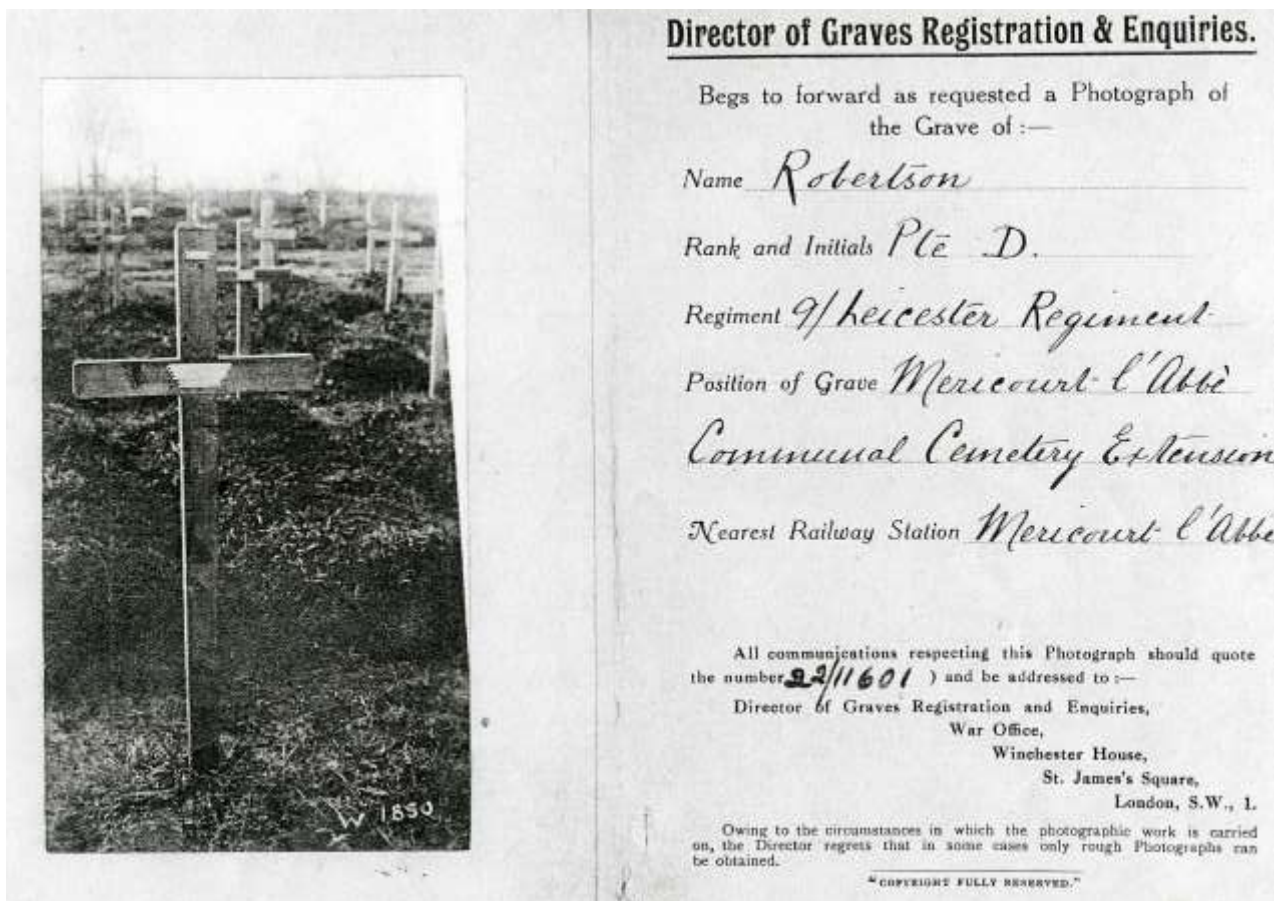 W 1850
Director of Graves Registration & Enquiries.
Begs to forward as requested a Photograph of
the Grave of :—
Name Robertson
Rank and Initials Pte D.
Regiment 9/Leicester Regiment
Position of Grave Mericourt l'Abbè
Communal Cemetery Extension
Nearest Railway Station Mericourt l'Abbe
All communications respecting this Photograph should quote
the number 22/11601 ) and be addressed to :—
Director of Graves Registration and Enquiries,
War Office,
Winchester House,
St. James's Square,
London, S.W., 1.
Owing to the circumstances in which the photographic work is carried
on, the Director regrets that in some cases only rough Photographs can
be obtained.
"COPYRIGHT FULLY RESERVED."